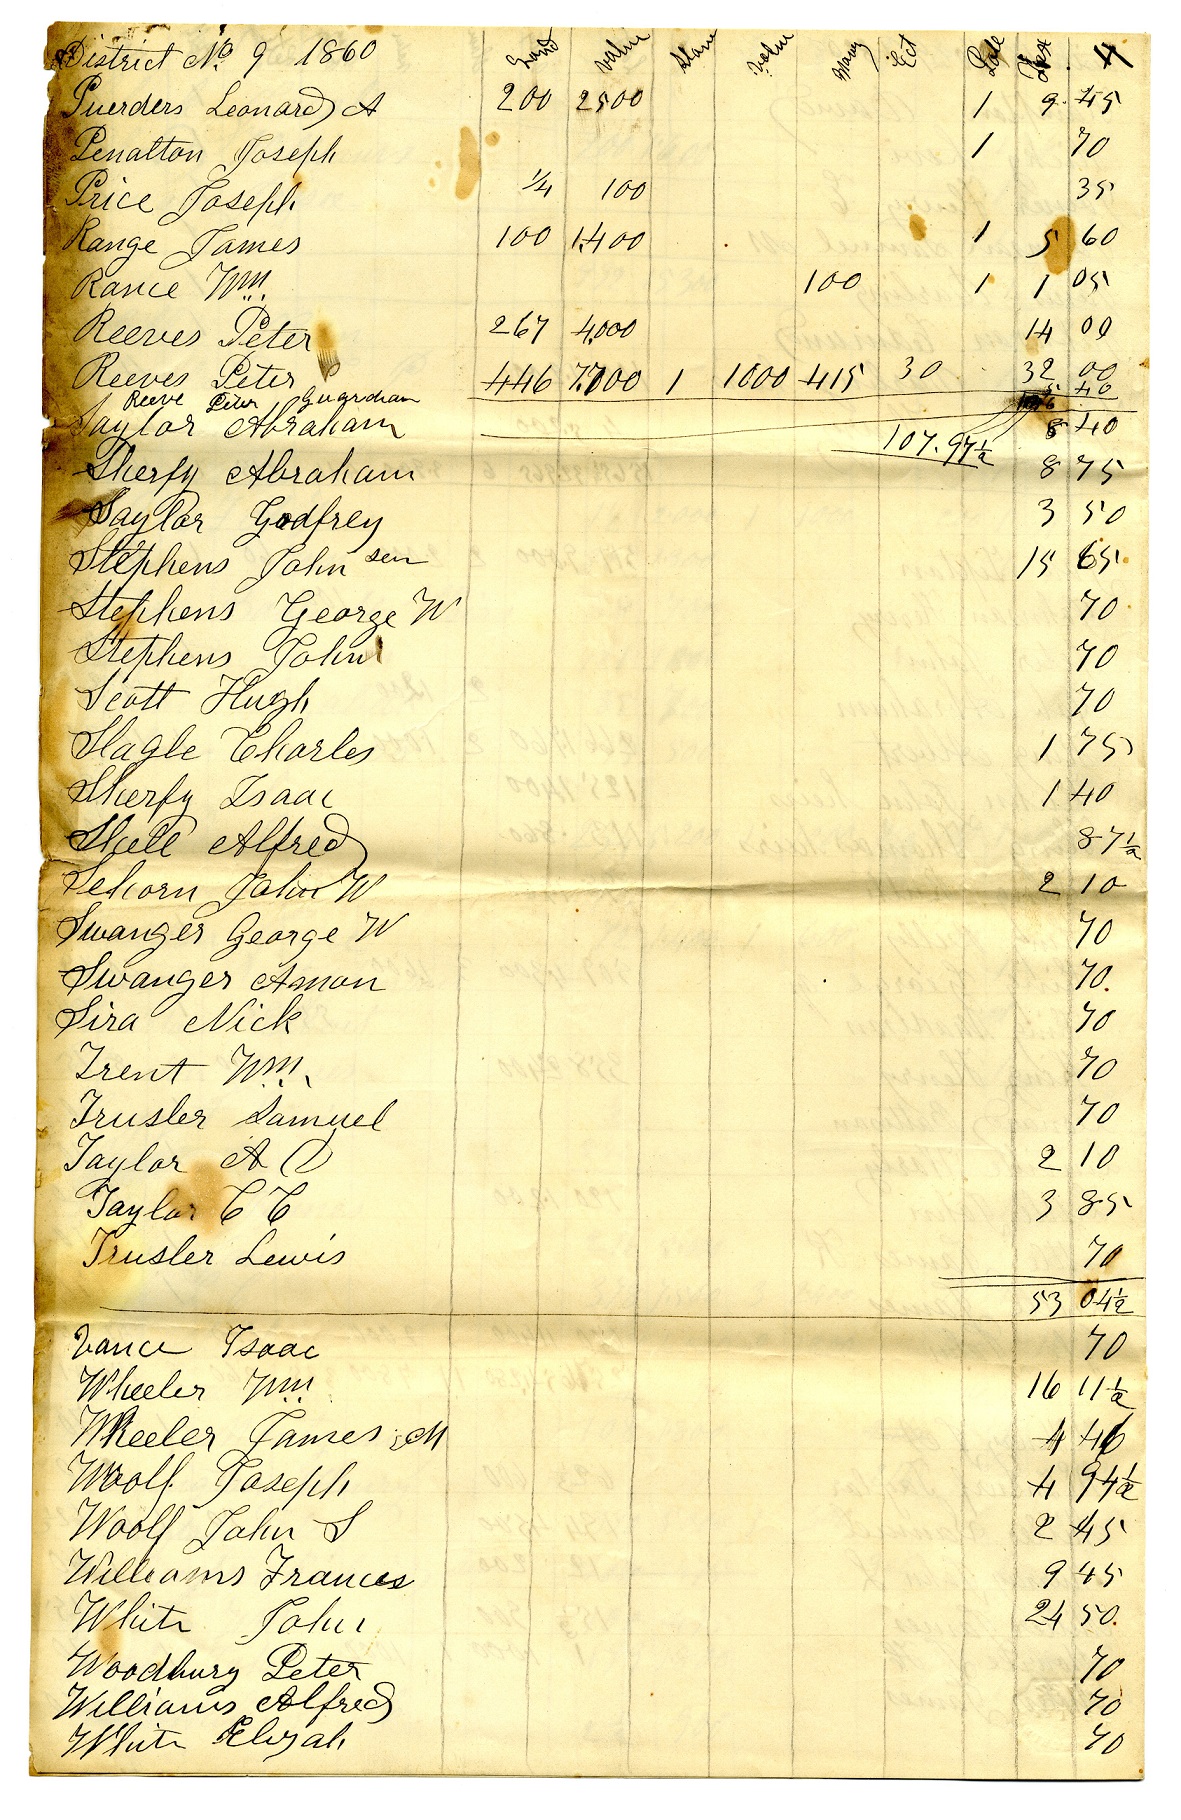 District No. 9 1860 Land value Slave value Many Ect Pole Tax 4
Puerders Leonard A 200 2500 1 9 45
Penalton Joseph 1 70
Price Joseph 1/4 100 35
Range James 100 1400 1 5 60
Rance Wm 100 1 1 05
Reeves Peter 267 4000 14 00
Reeves Peter 446 7700 1 1000 415 30 32 00
Reeve Peter Guardian 40
Saylor Abraham 8 40
107.97½
Sherfy Abraham 8 75
Saylor Godfrey 3 50
Stephens John sen 15 65
Stephens George W 70
Stephens John 70
Scott Hugh 70
Slagle Charles 1 75
Sherfy Isaac 1 40
Shell Alfred 87½
Sehorn John W 2 10
Swanger George W 70
Swanger Amon 70.
Sira Nick 70
Trent Wm. 70
Trusler Samuel 70
Taylor A D 2 10
Taylor C C 3 85
Trusler Lewis 70
53 04½
Vance Isaac 70
Wheeler Wm 16 11½
Wheeler James M 4 46
Woolf Joseph 4 94½
Woolf John S 2 45
Williams Frances 9 45
White John 24 50.
Woodbury Peter 70
Williams Alfred 70
White Elijah 70